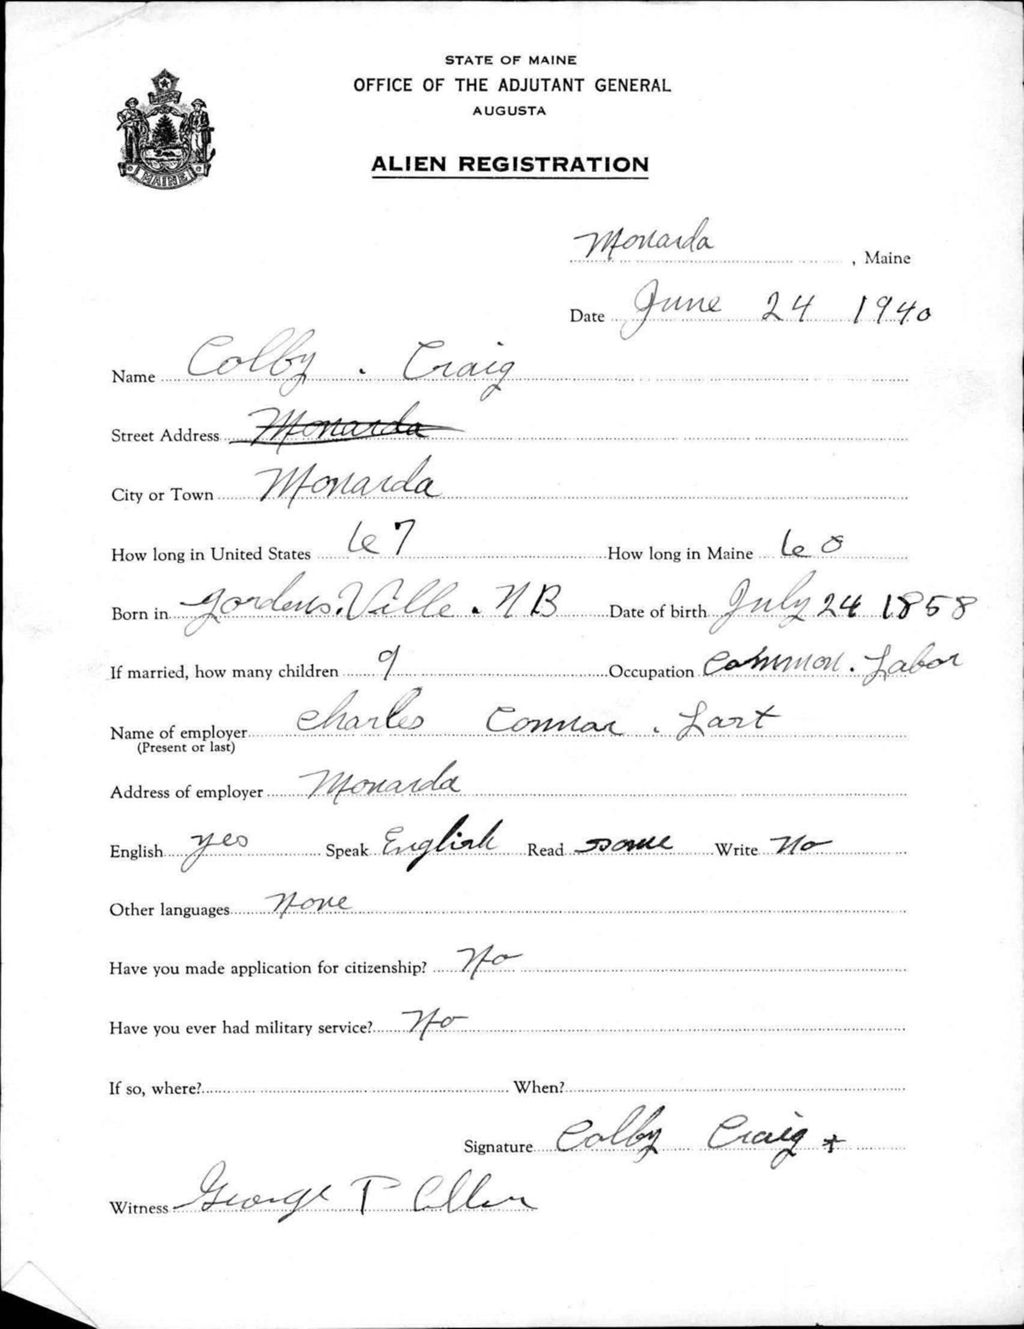 STATE OF MAINE
OFFICE OF THE ADJUTANT GENERAL
AUGUSTA
MAINE
ALIEN REGISTRATION
Monarda, Maine
Date June 24 1940
Name Colby . Craig
Street Address Monarda
City or Town Monarda
How long in United States 67 How long in Maine 60
Born in Gordens.Ville . NB Date of birth July 24 1858
If married, how many children 9 Occupation Common . Labor
Name of employer Charles Connar . Last
(Present or last)
Address of employer Monarda
English yes Speak English Read some Write No
Other languages None
Have you made application for citizenship? No
Have you ever had military service? No
If so, where? When?
Signature Colby Craig +
Witness George P